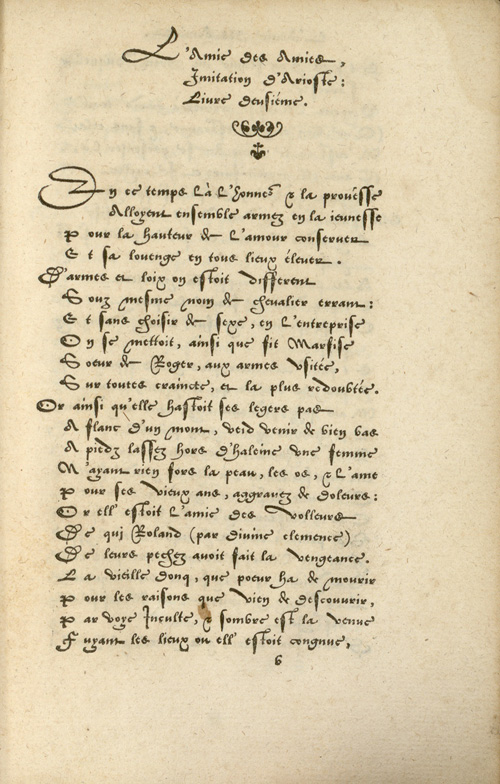 L'Amie des Amies,
Imitation d'Arioste:
Livre deusiéme.
En ce temps là L'honneᵘʳ & la prouësse
Alloyent ensemble armez en la ieunesse
Pour la hauteur de L'amour conserver
Et sa louenge en tous lieux élever.
D'armes et loix on estoit different
Souz mesme nom de chevalier errant:
Et sans choisir de sexe, en L'entreprise
On se mettoit, ainsi que fit Marfise
Soeur de Roger, aux armes vsitée,
Sur toutes crainctes, et la plus redoubtée.
Or ainsi qu'elle hastoit ses legers pas
A flanc d'un mont, veid venir de bien bas
A piedz lassez hors d'haleine vne femme
N'ayant rien fors la peau, les os, & L'ame
Pour ses vieux ans, aggravez de doleurs:
Or ell' estoit L'amie des volleurs
De qui Roland (par divine clemence)
De leurs pechez avoit fait la vengeance.
La vieille donq, que poeur ha de mourir
Pour les raisons que vien de descouvrir,
Par voye Inculte, & sombre est la venue
Fuyant les lieux ou ell' estoit congnue,
6